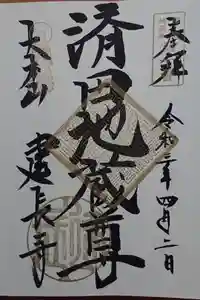 奉拝
令和二年四月二日
済田地蔵尊
大本山
建長寺